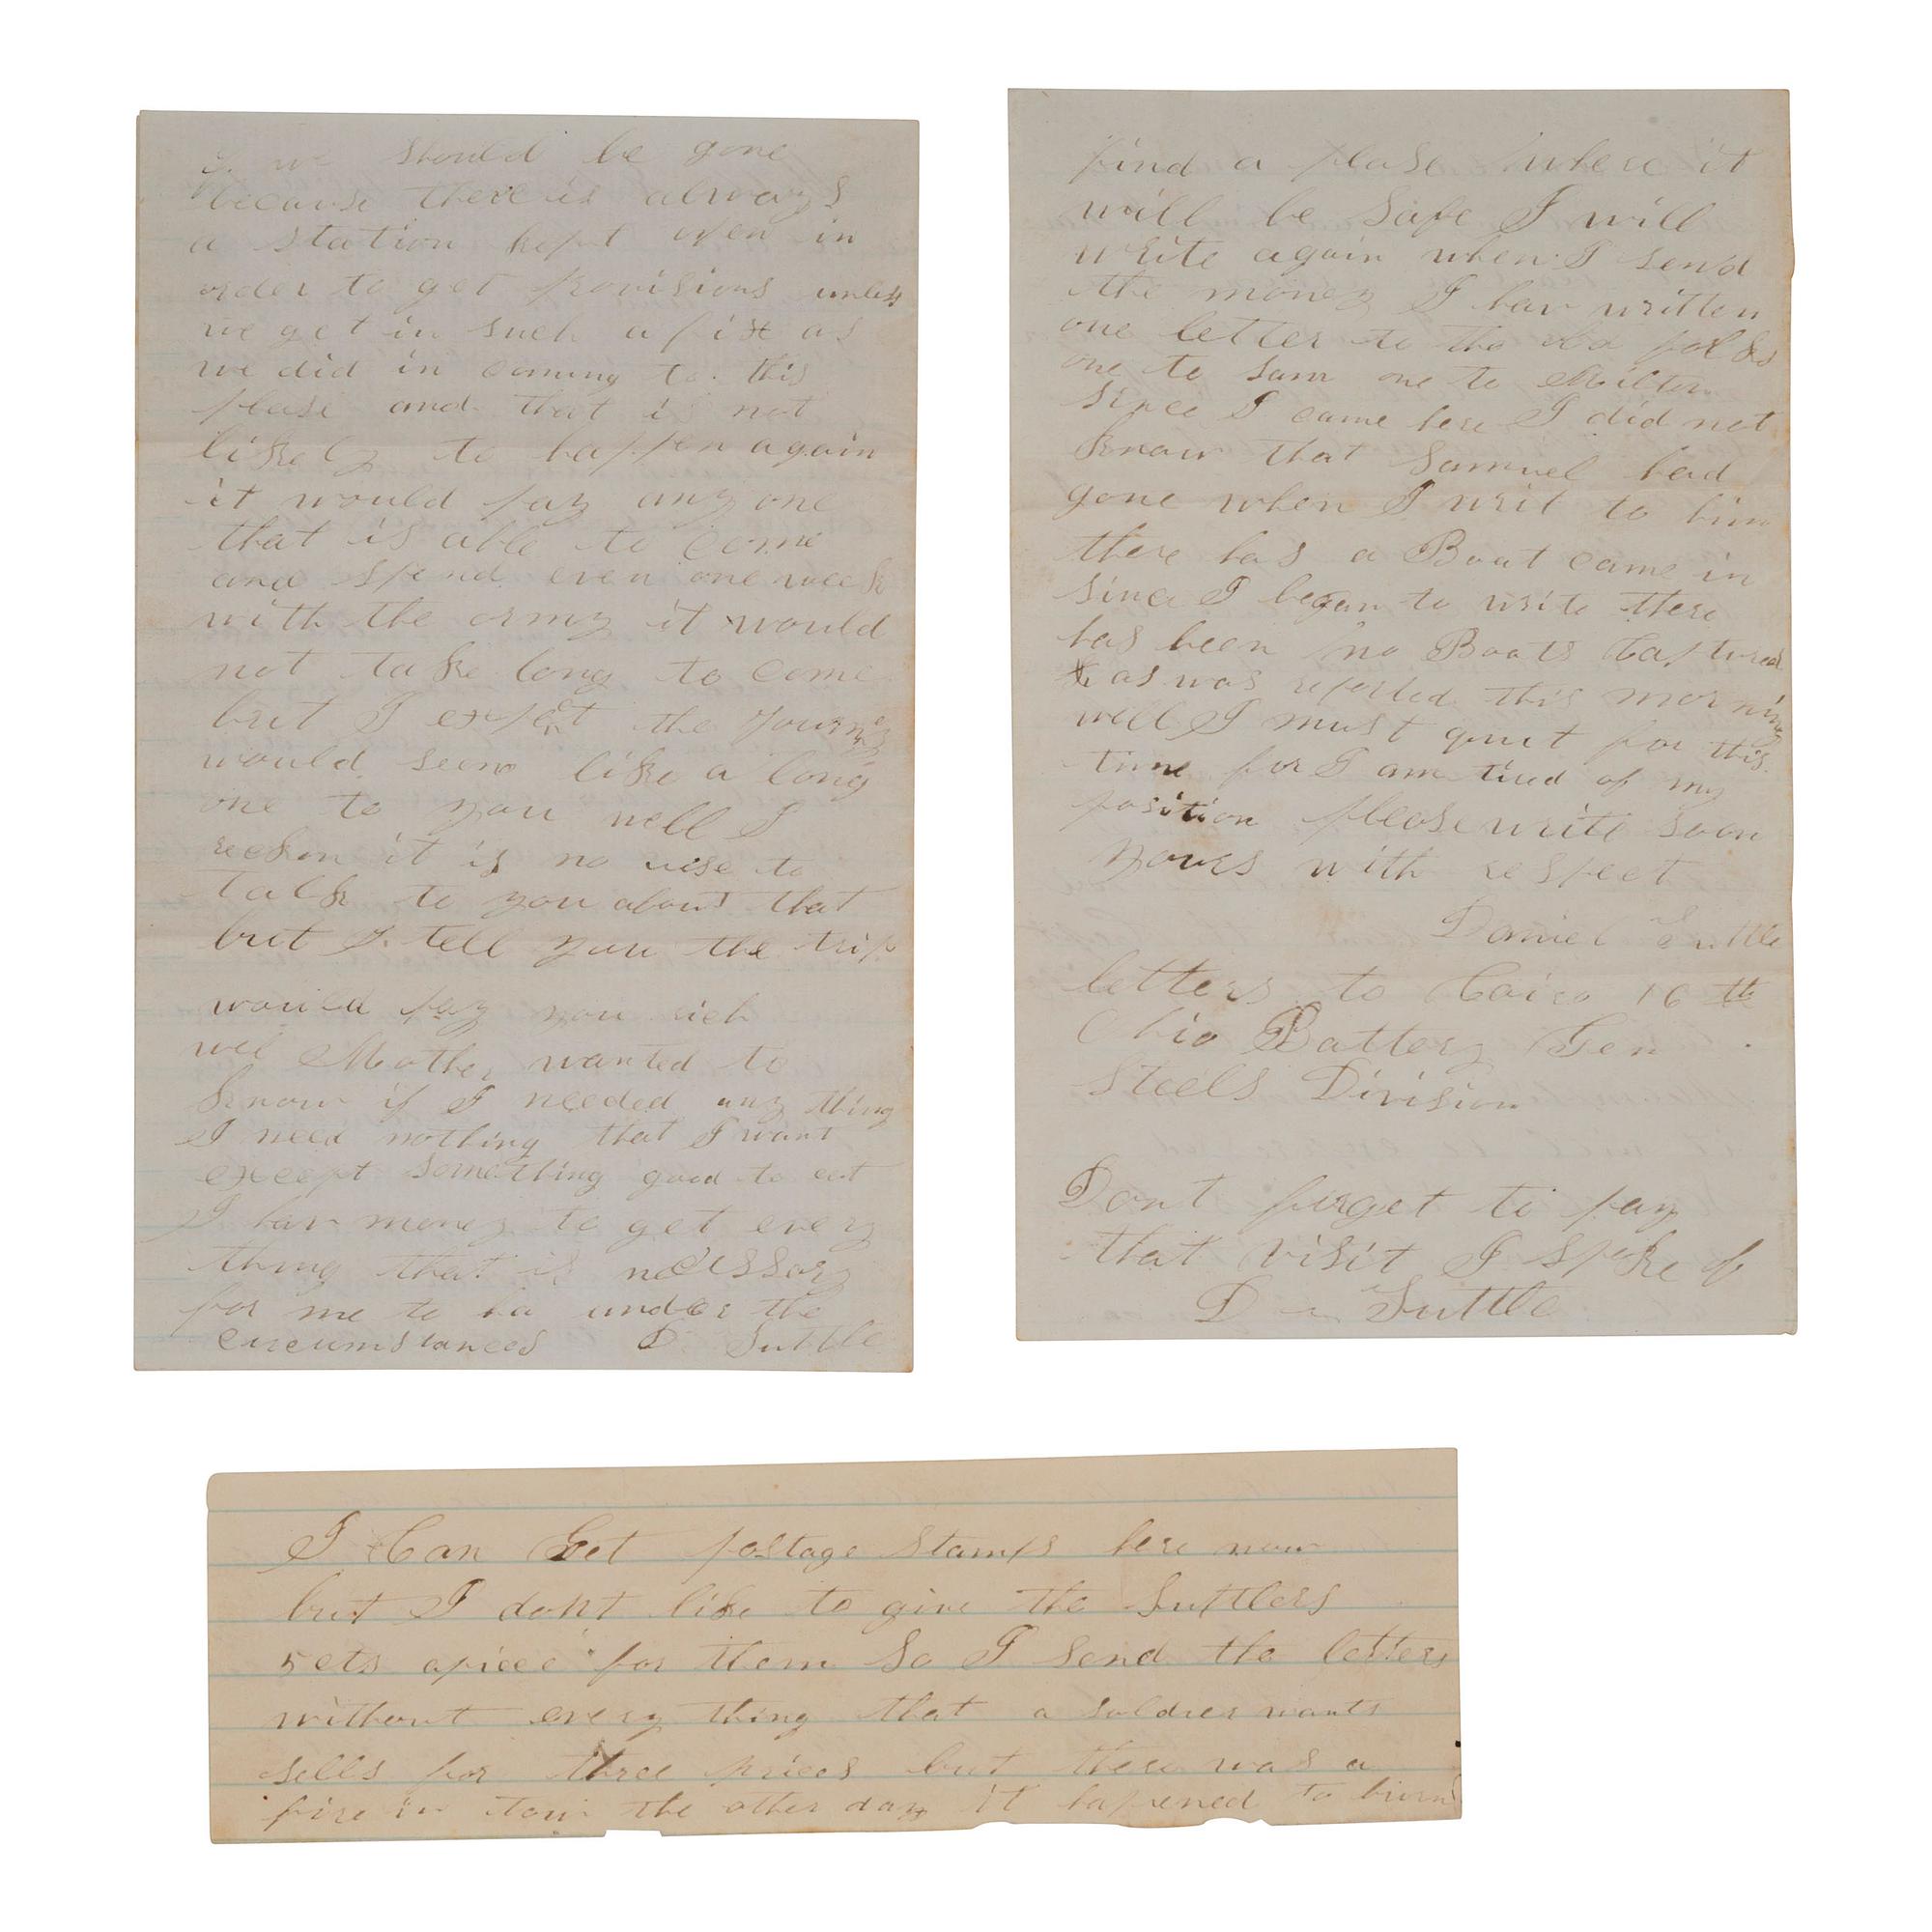 if we should be gone
because there is always
a station kept open in
order to get provisions unless
we get in such a fix as
we did in coming to this
plase and that is not
likely to happen again
it would pay any one
that is able to come
and spend even one week
with the army it would
not take long to come
but I expect the Journey
would seem like a long
one to you well I
reckon it is no use to
talk to you about that
but I tell you the trip
would pay you rich
wel Mother wanted to
know if I needed any thing
I need nothing that I want
except something good to eat
I hav money to get every
thing that is
for me to ha under the
circumstances D. Suttle
find a plase where it
will be Safe I will
write again when I send
the money I hav written
one letter to the folks
one to Sam one to Milton
since I came here I did not
know that Samuel had
gone when I writ to him
there has a Boat came in
since I began to write there
has been no Boats Captured
as was reported this morning
well I must quit for this
time for I am tired of my
position please write soon
yours with respect
Daniel Suttle
letters to Cairo 16 th
Ohio Battery Gen
Steels Division
Dont forget to pay
that visit I spoke of
D Suttle
I Can Get postage stamps here now
but I dont like to give the Suttlers
5cts apiece for them So I send the letters
without every thing that a soldier wants
sells for three prices but there was a
fire in town the other day it hapened to burn